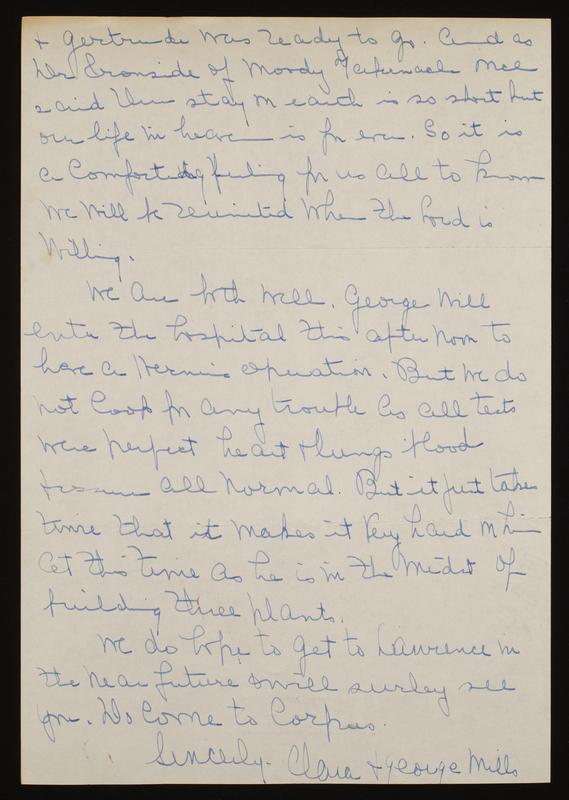 + Gertrude was ready to go. And as
Dr Ironside of Moody Tabernacle once
said Our stay on earth is so short but
our life in heaven is for ever. So it is
a Comforting feeling for us all to know
We Will be reunited When the Lord is
Willing.
We are both well. George Will
enter the hospital this after noon to
have a Hernia operation. But We do
not look for any trouble as all tests
were perfect heart + lungs + blood
all Normal. But it just takes
time that it makes it Very hard on him
at this time as he is in the Midst of
building three plants.
We do hope to get to Lawrence in
the near future + will surley see
you. Do Come to Corpus.
Sincerly. Clara + George Mills